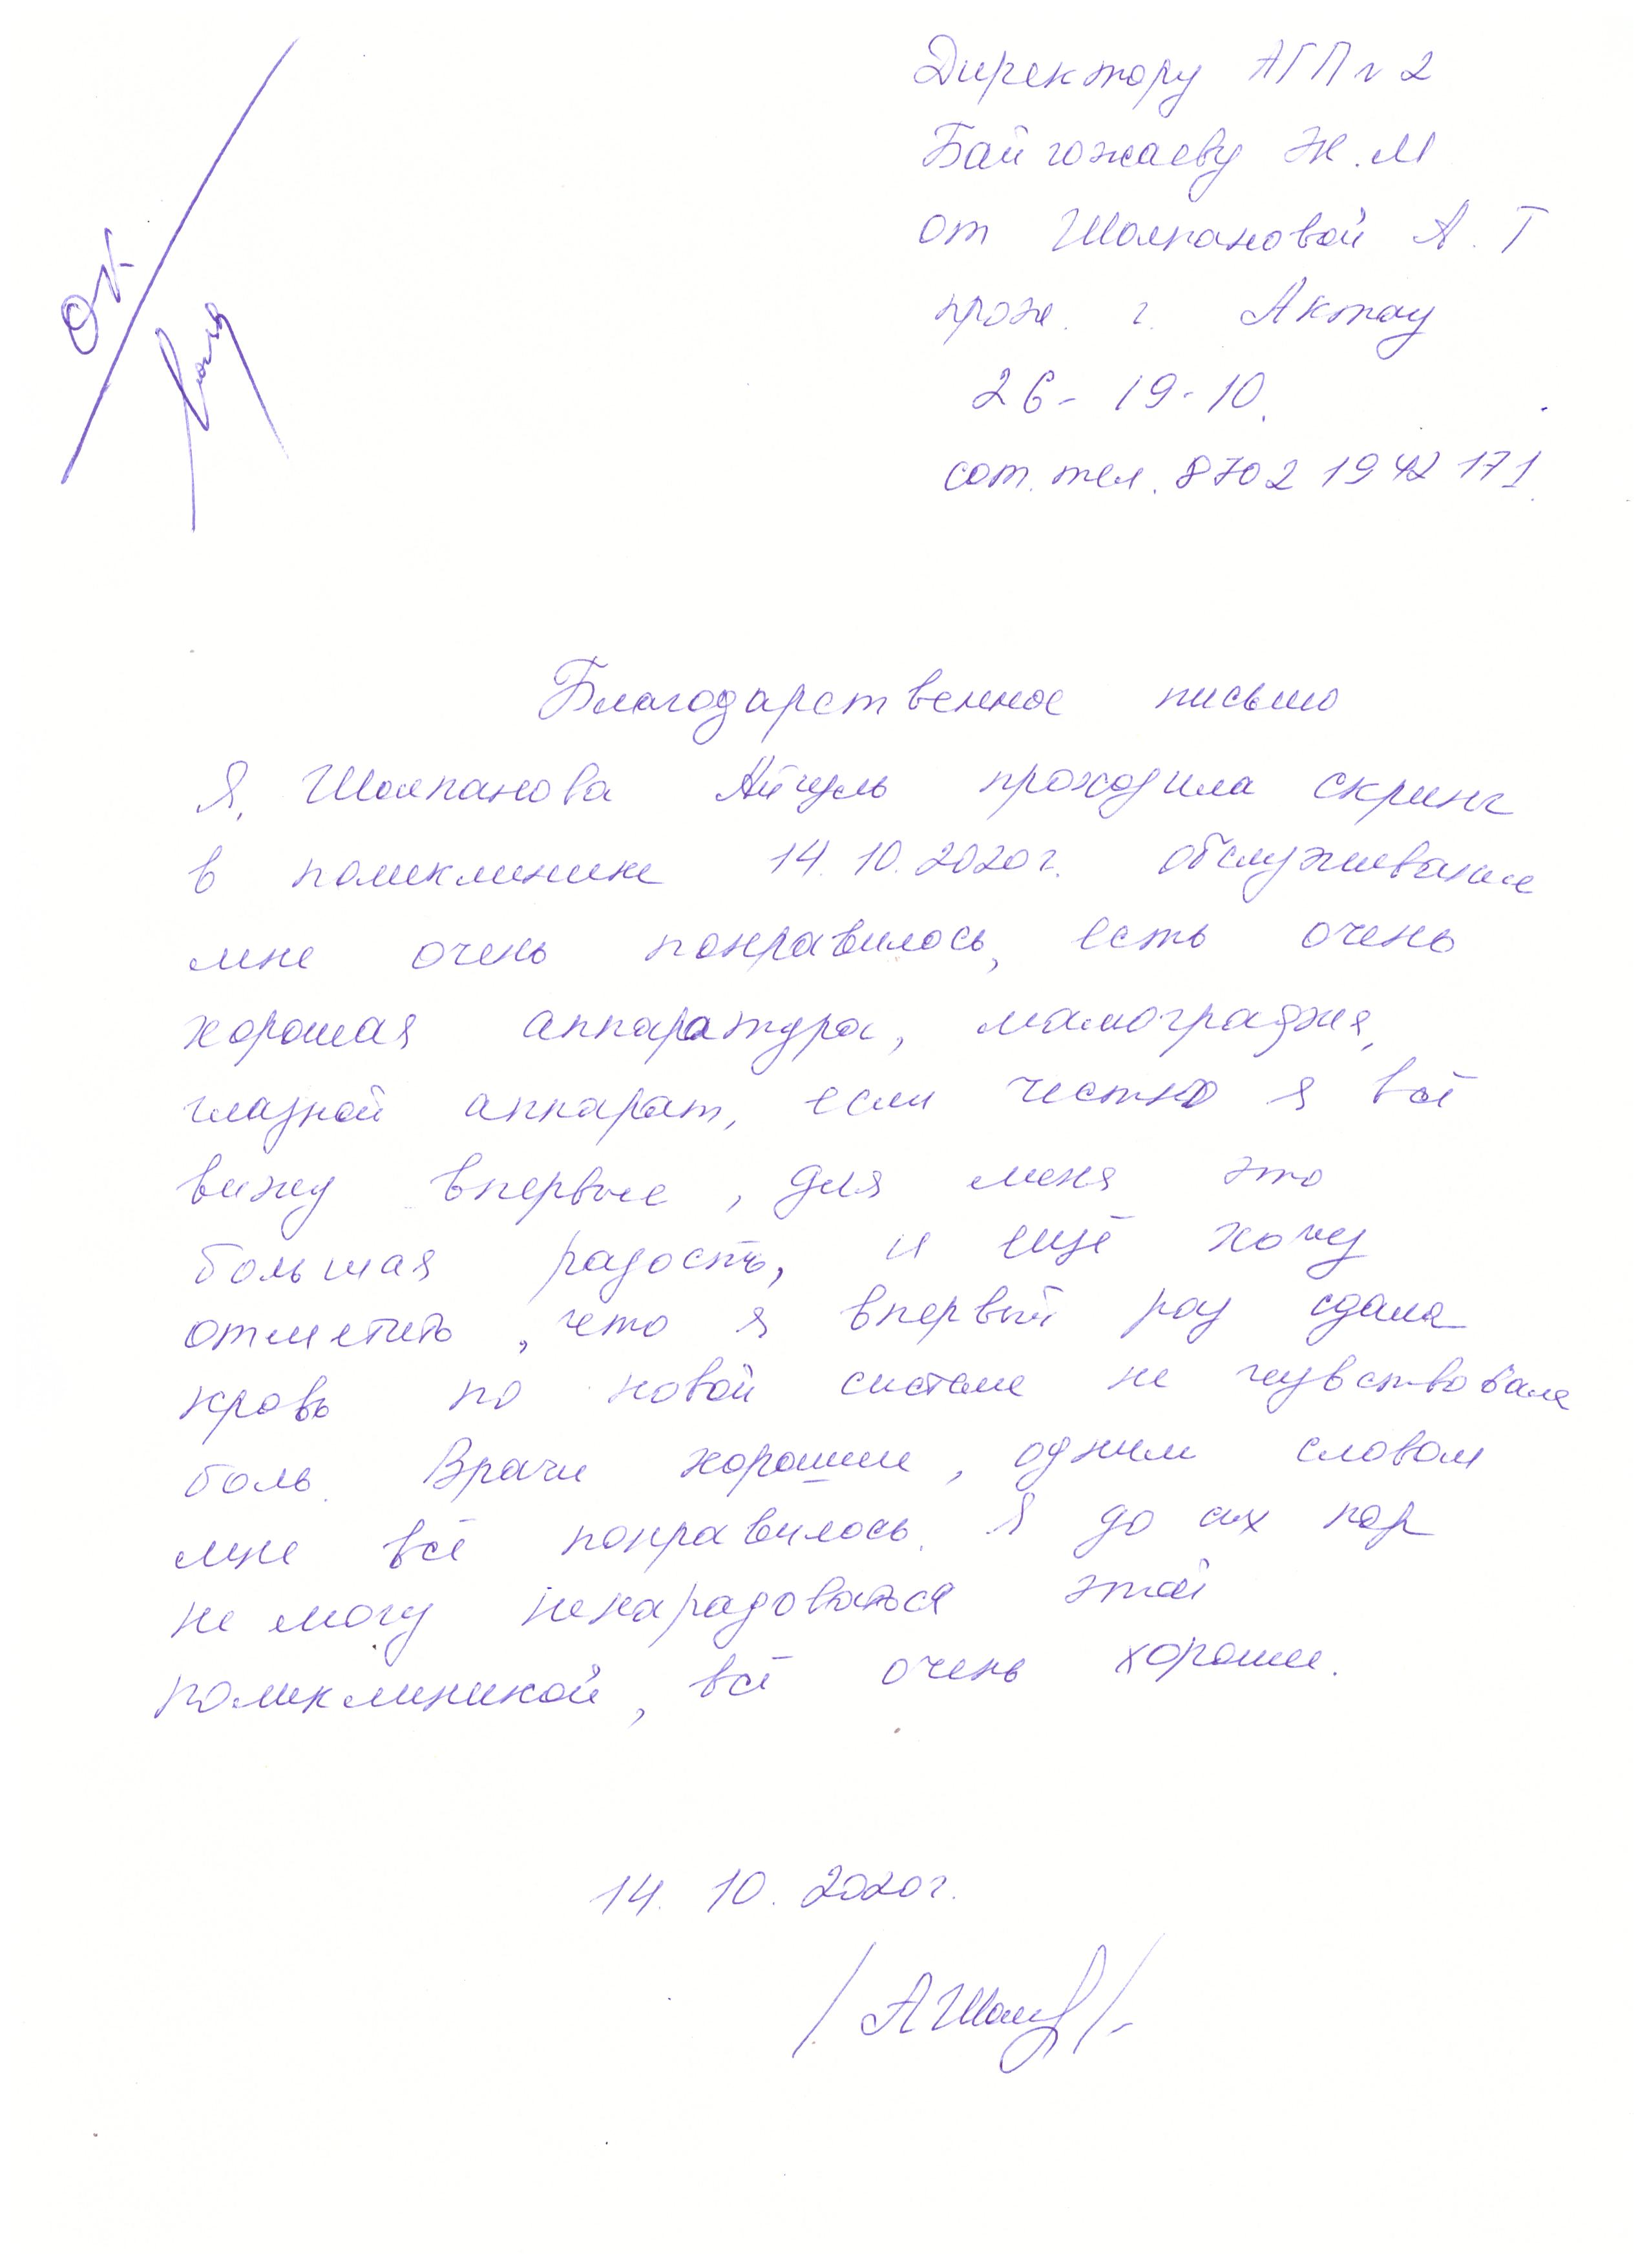 Директору АГП № 2
Байгожаеву Ж.М
от Шолпановой А. Т
прож. г. Актау
26 - 19 - 10.
сот. тел. 8702 19 42 171.
Ок
Благодарственное письмо
Я, Шолпанова Айгуль проходила скринг
в поликлинике 14. 10. 2020г. обслуживание
мне очень понравилось, есть очень
хорошая аппаратура, мамография,
глазной аппарат, если честно я всё
вижу впервые, для меня это
большая радость, и ещё хочу
отметить, что я впервый раз сдала
кровь по новой системе не чувствовала
боль. Врачи хорошие, одним словом
мне всё понравилось. Я до сих пор
не могу ненарадоваться этой
поликлиникой, всё очень хорошее.
14. 10. 2020г.